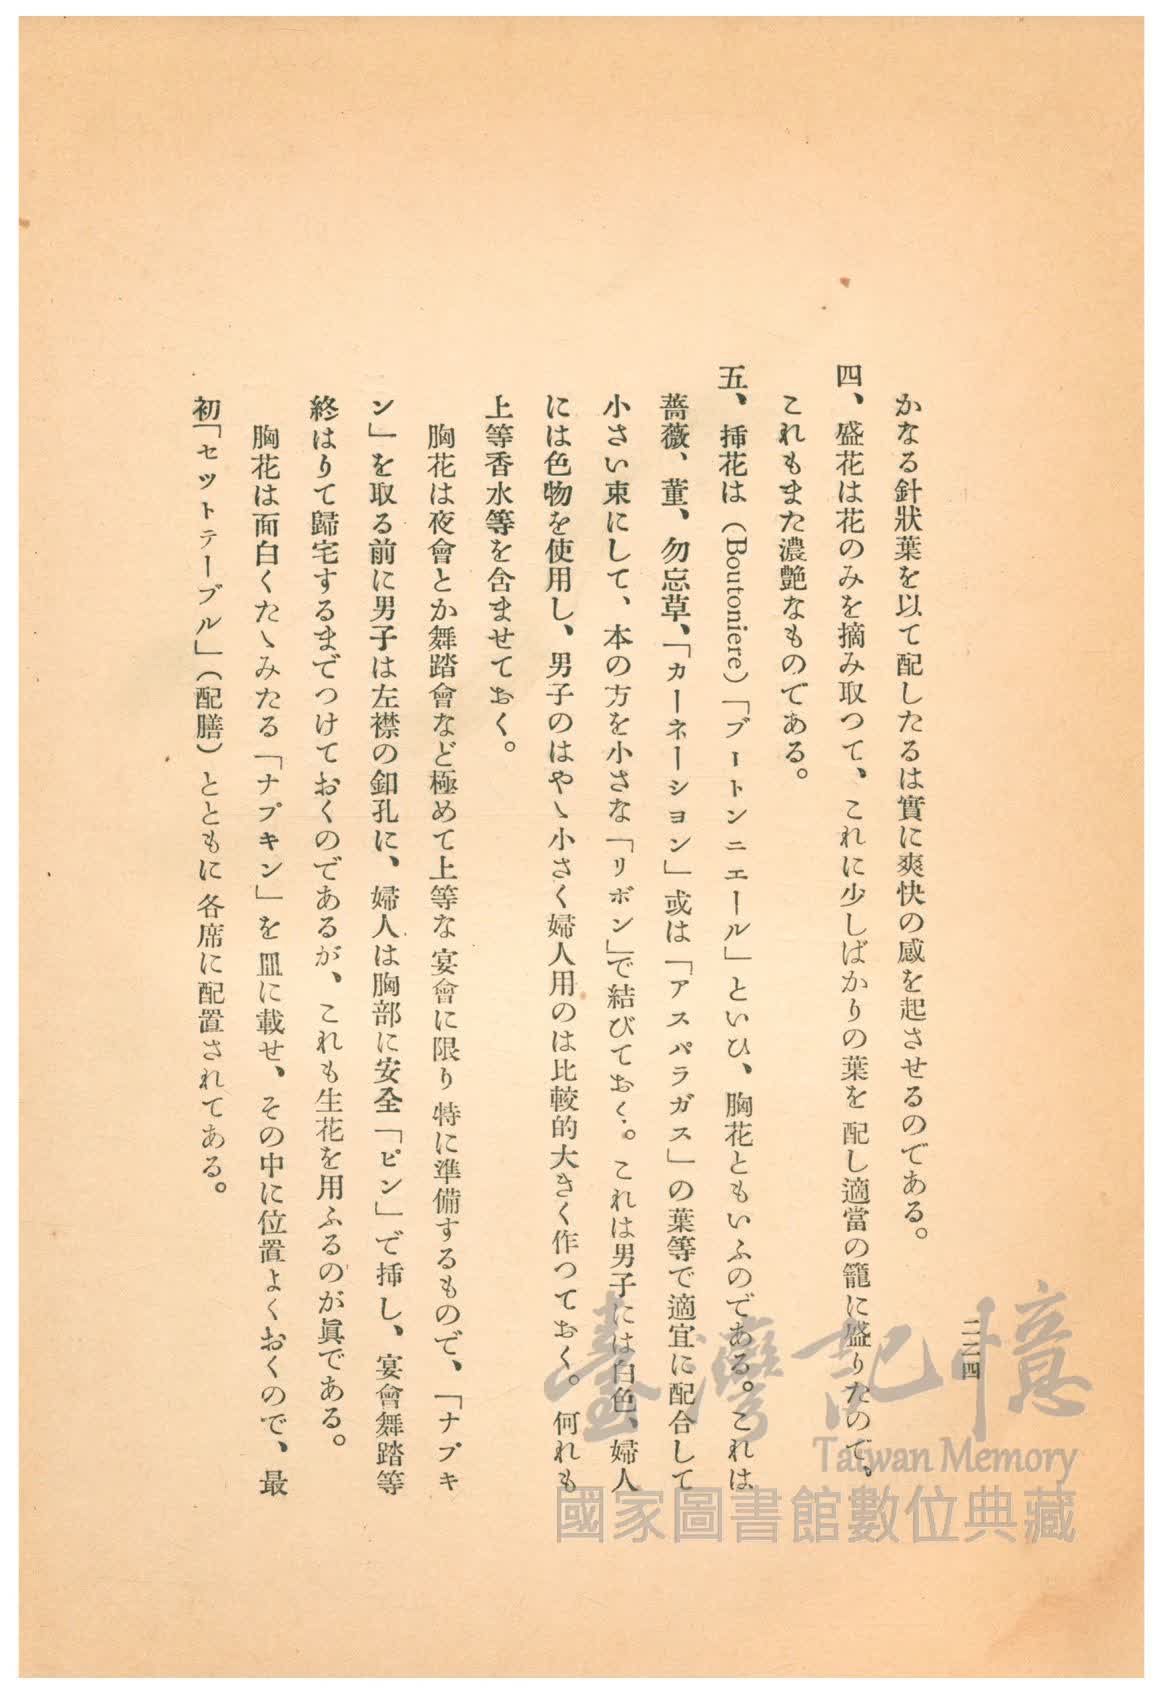 かなる針狀葉を以て配したるは實に爽快の感を起させるのである。
四、盛花は花のみを摘み取つて、これに少しばかりの葉を配し適當の籠に盛りたので、
これもまた濃艶なものである。
五、揷花は（Boutoniere）「ブートンニエール」といひ、胸花ともいふのである。これは
薔薇、菫、勿忘草、「カーネーション」或は「アスパラガス」の葉等で適宜に配合して
小さい束にして、本の方を小さな「リボン」で結びておく。これは男子には白色、婦人
には色物を使用し、男子のはやゝ小さく婦人用のは比較的大きく作つておく。何れも
上等香水等を含ませておく。
胸花は夜會とか舞踏會など極めて上等な宴會に限り特に準備するもので、「ナプキ
ン」を取る前に男子は左襟の釦孔に、婦人は胸部に安全「ピン」で揷し、宴會舞踏等
終はりて歸宅するまでつけておくのであるが、これも生花を用ふるのが眞である。
胸花は面白くたゝみたる「ナプキン」を皿に載せ、その中に位置よくおくので、最
初「セットテーブル」（配膳）とともに各席に配置されてある。
二二四
臺灣記憶
Taiwan Memory
國家圖書館數位典藏